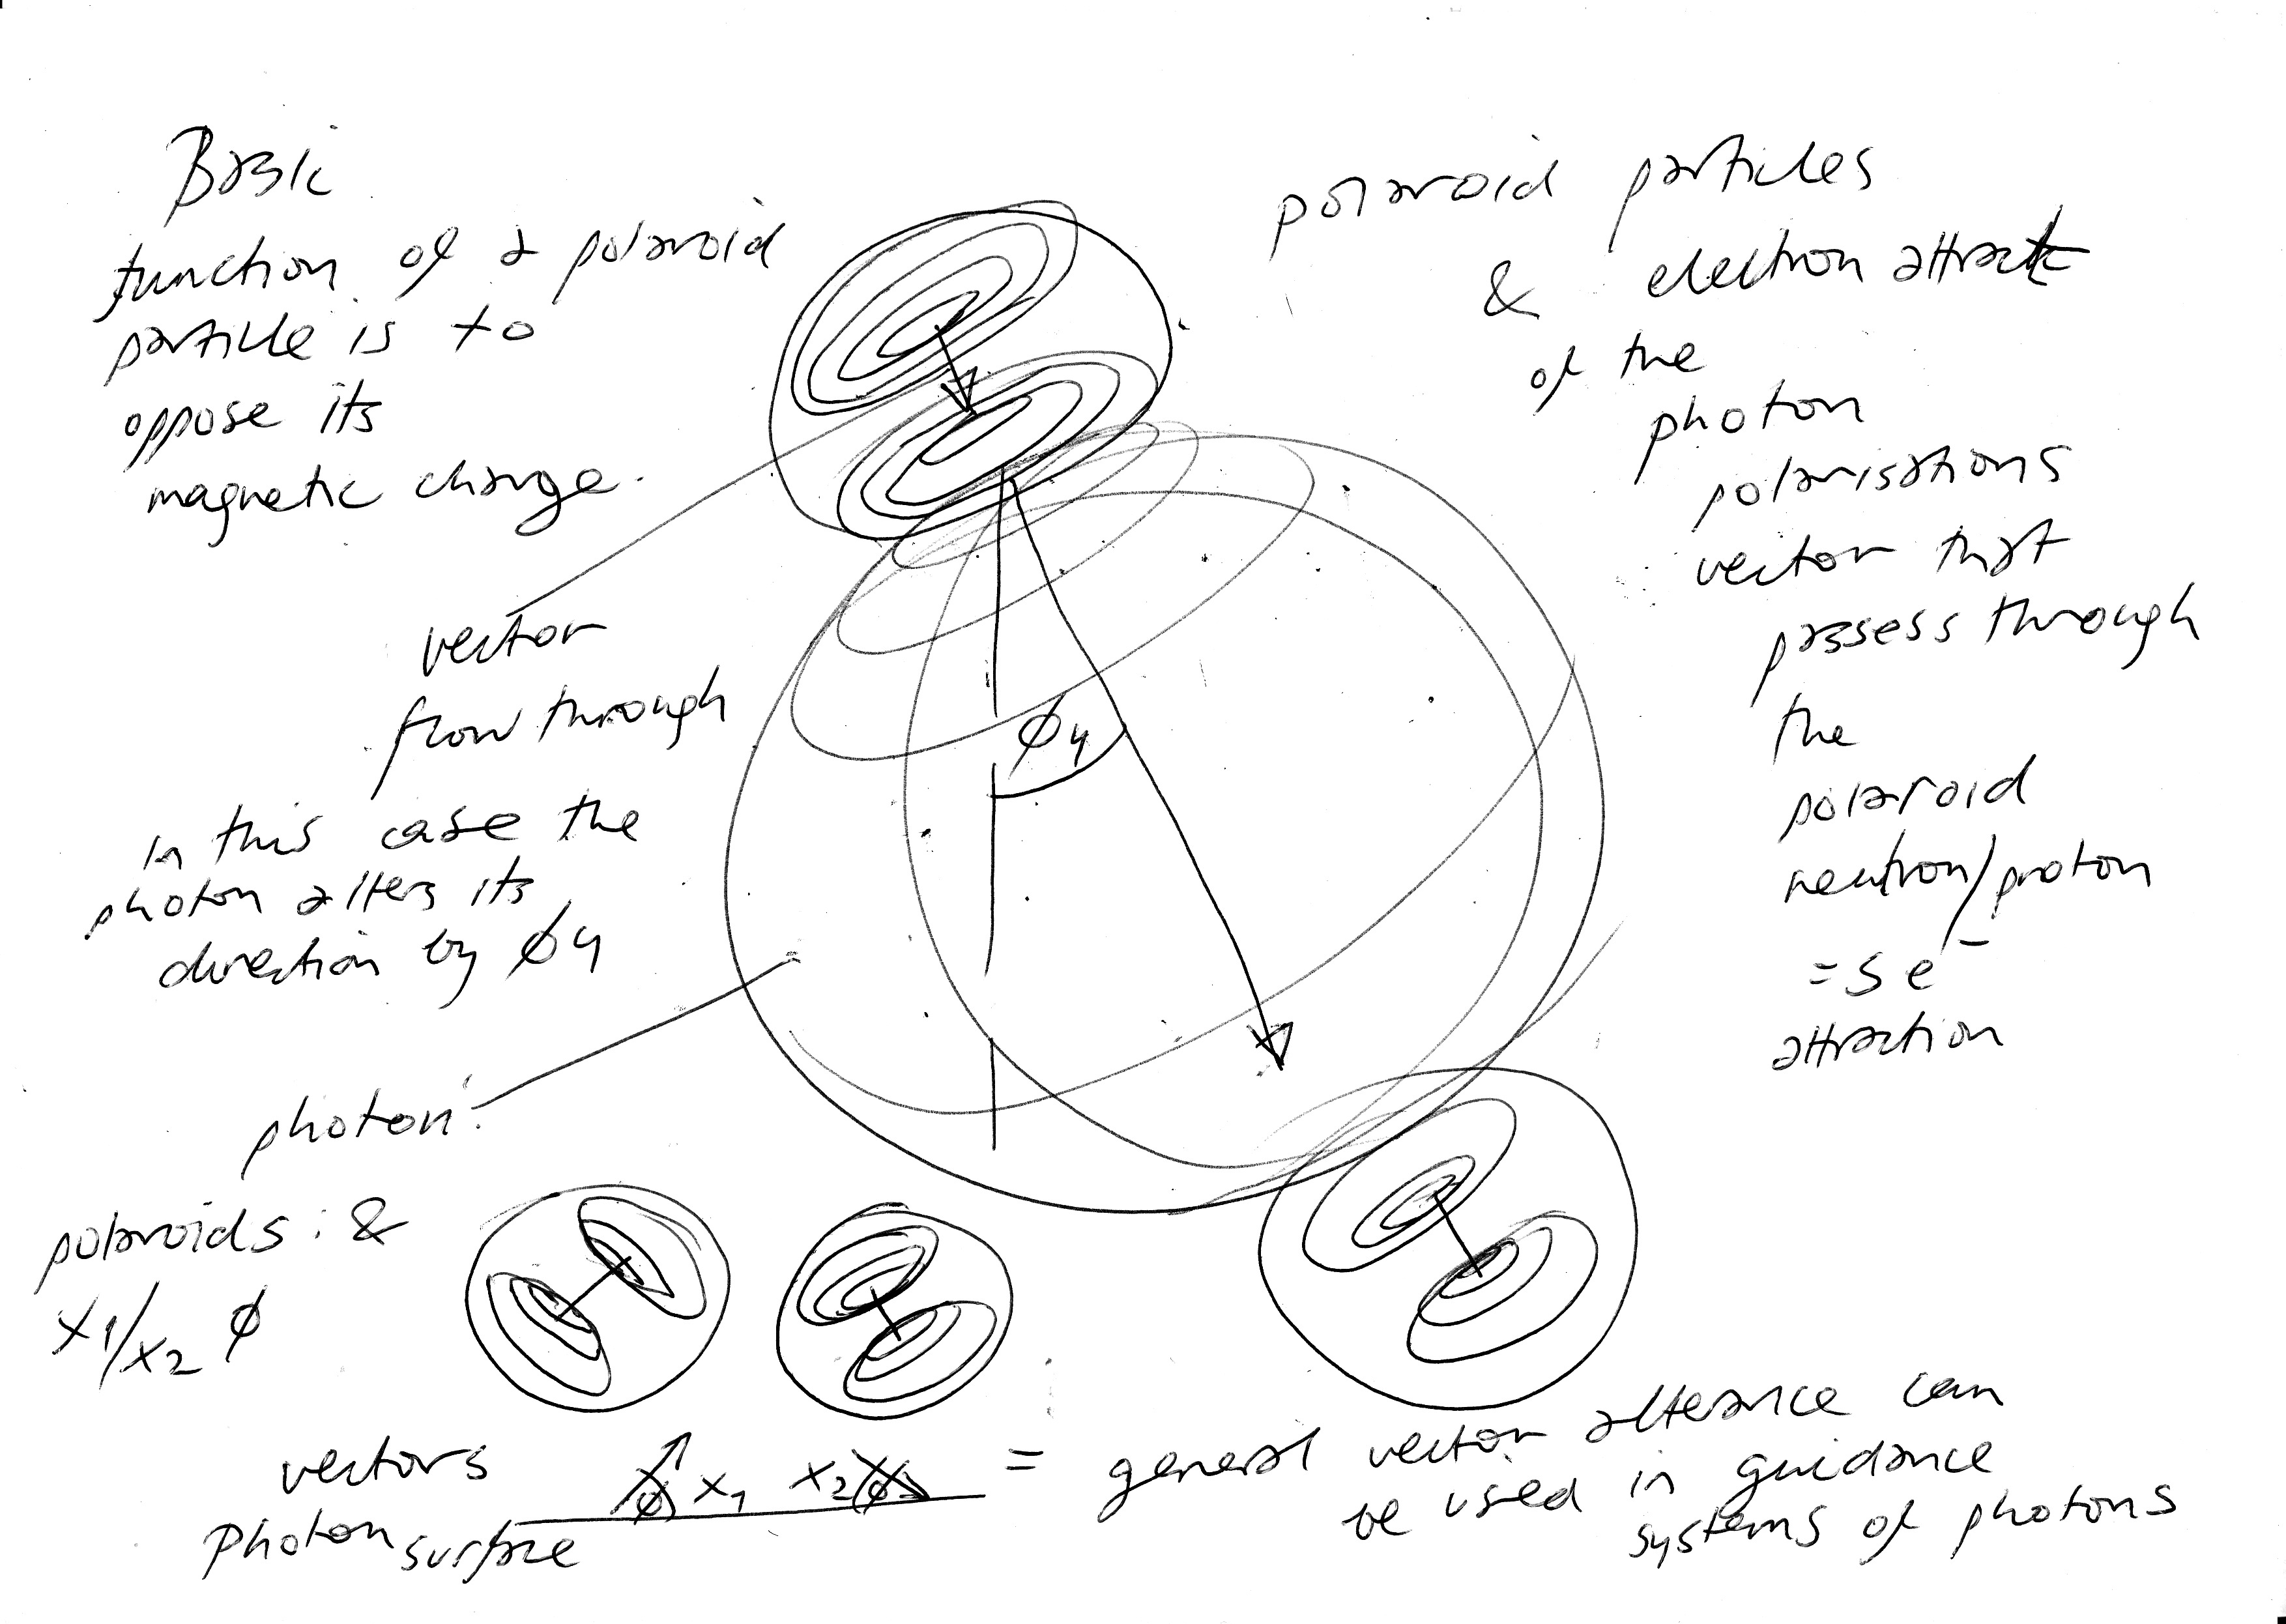 Basic
function of a polaroid
particle is to
oppose its
magnetic charge.
vector
flow through
in this case the
photon alters its
direction by ϕ4
photon:
polaroids: &
x1/x2 ϕ
polaroid particles
& electron attract
of the
photon
polarisations
vector that
possess through
the
polaroid
neutron/proton
= s e⁻
attraction
ϕ4
vectors ϕ x1 x2 ϕ = general vector alterance can
Photon surface be used in guidance
systems of photons